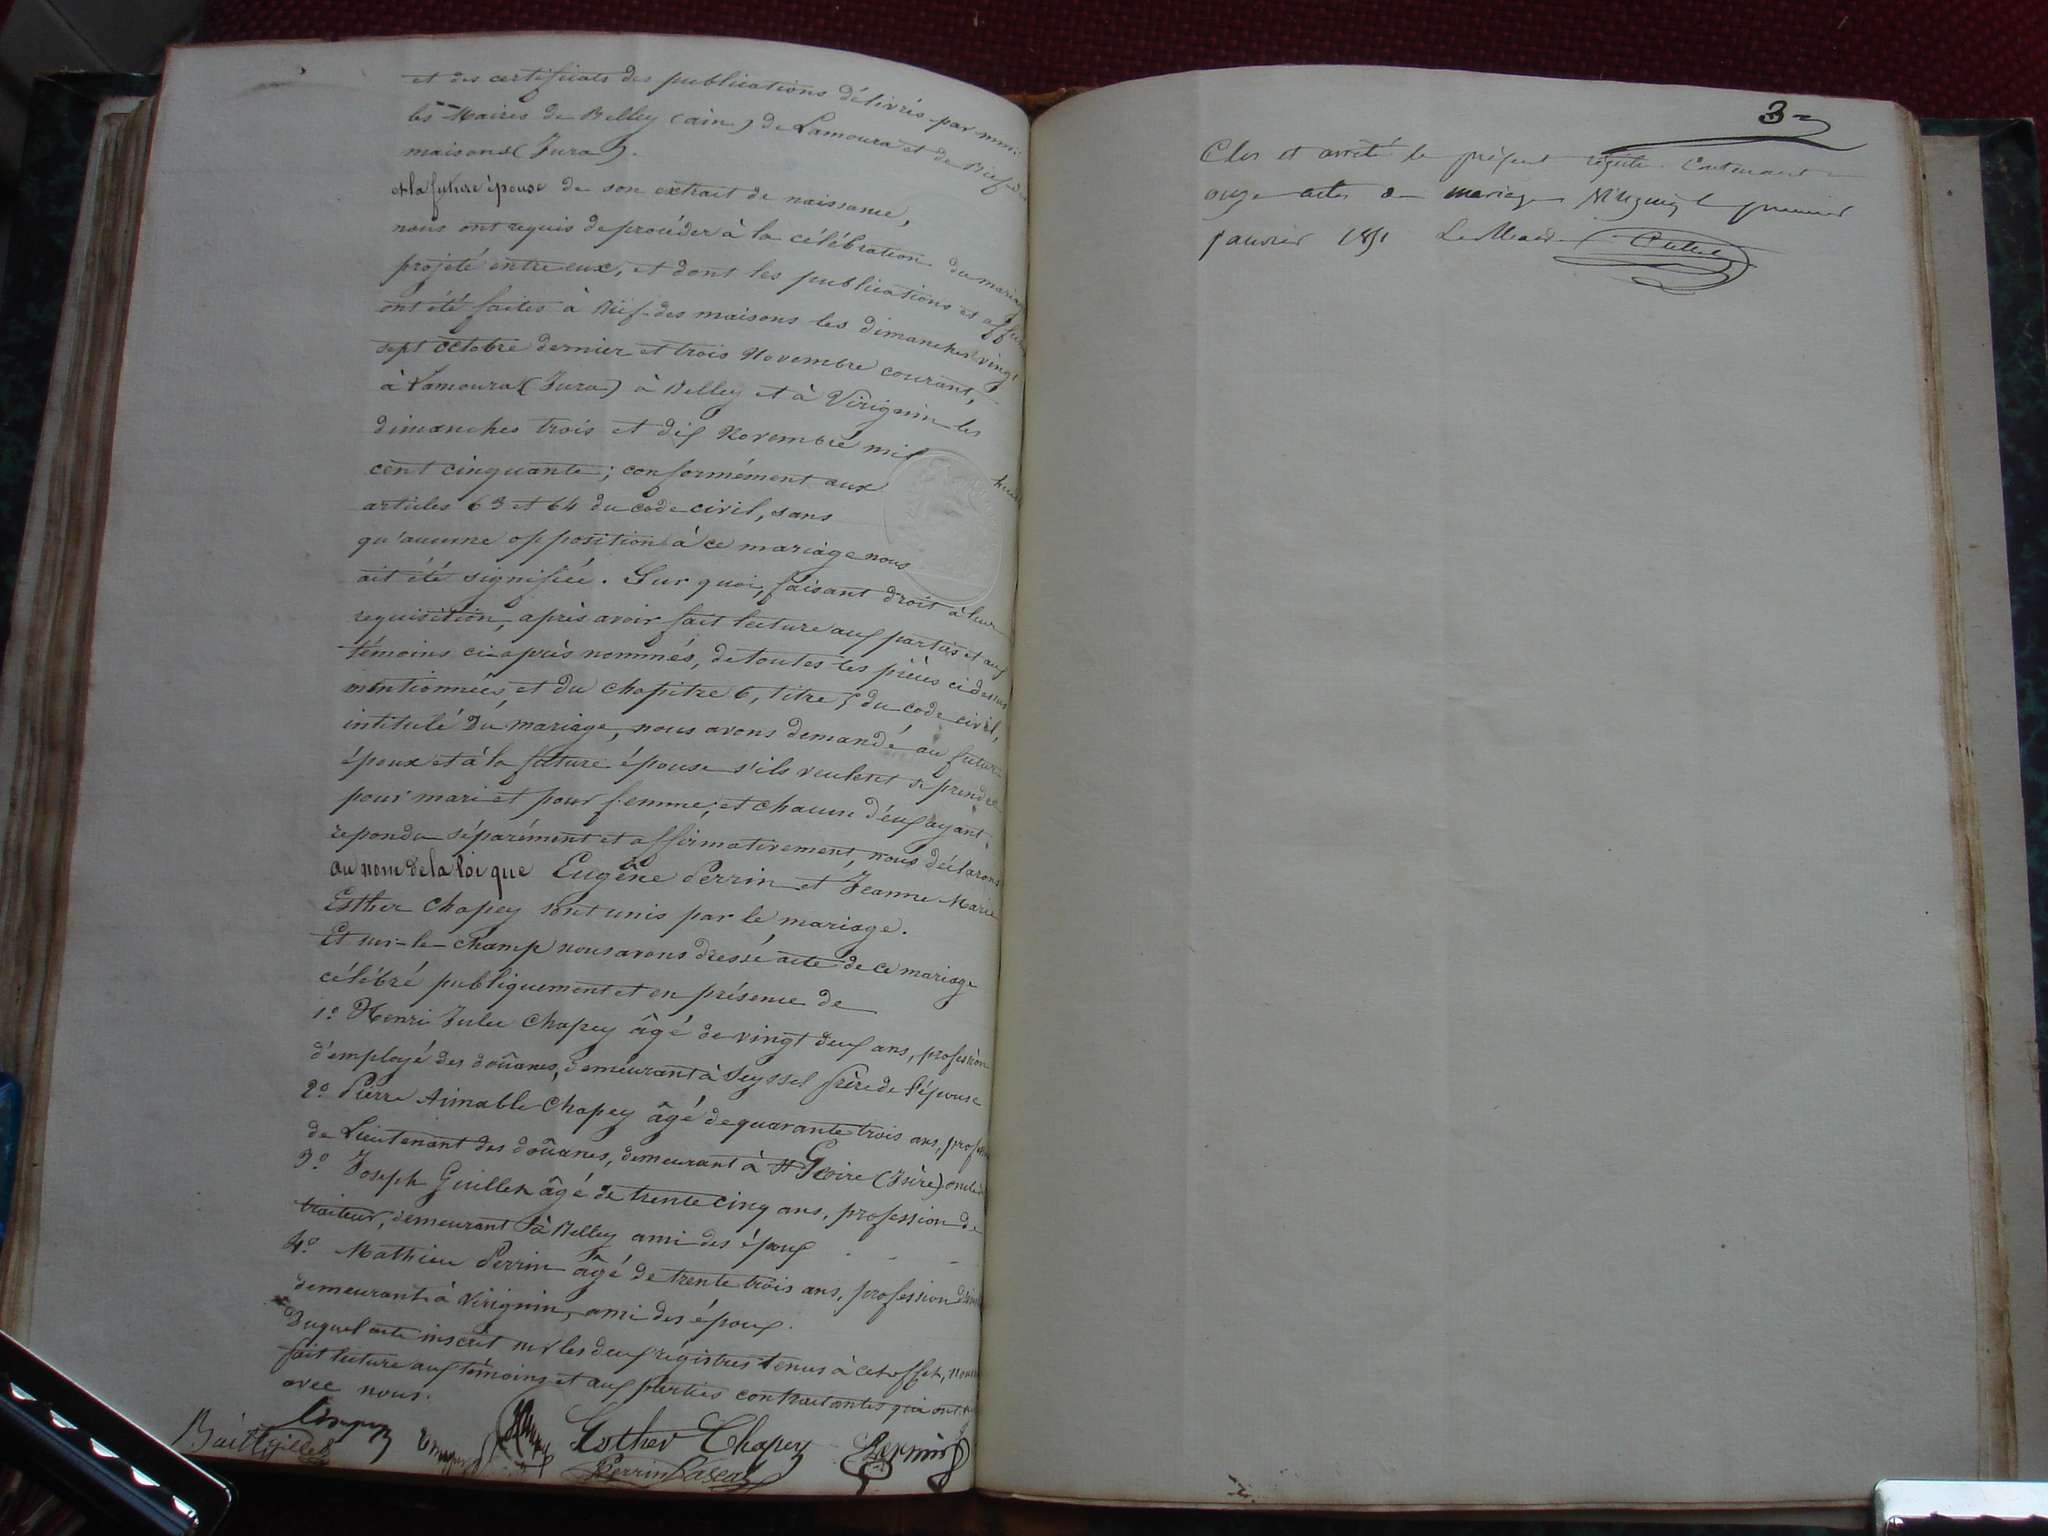 et des certificats des publications délivrés par mm:
les Maires de Belley (ain) de Lamoura et de Rief-des
maisons (Jura).
et la future épouse de son extrait de naissance,
nous ont requis de procéder à la célébration du mariage
projeté entre eux, et dont les publications et affiches
ont été faites à Rief-des maisons les dimanches vingt
sept Octobre dernier et trois Novembre courant,
à Lamoura (Jura) à Belley et à Virignin les
dimanches trois et dix Novembre mil huit
cent cinquante; conformément aux
articles 63 et 64 du code civil, sans
qu'aucune opposition à ce mariage nous
ait été signifiée. Sur quoi, faisant droit à leur
requisition, après avoir fait lecture aux parties et aux
témoins ci-après nommés, de toutes les pièces ci dessus
mentionnées, et du chapitre 6, titre 5 du code civil,
intitulé Du mariage, nous avons demandé au futur
époux et à la future épouse s'ils veulent se prendre
pour mari et pour femme; et chacun d'eux ayant
repondu séparément et affirmativement, nous déclarons
au nom de la loi que Eugène Perrin et Jeanne Marie
Esther Chapey sont unis par le mariage.
Et sur-le-champ nous avons dressé acte de ce mariage
célébré publiquement et en présence de
1º Henri Jules Chapey âgé de vingt deux ans, profession
d'employé des douânes, demeurant à Seyssel frère de l'épouse
2º Pierre Aimable Chapey âgé de quarante trois ans, profession
de Lieutenant des douânes, demeurant à St Geoire (Isère) oncle
3º Joseph Guillen âgé de trente cinq ans, profession de
traiteur, demeurant à Belley ami des époux
4º Mathieu Perrin âgé de trente trois ans, profession
demeurant à Virignin, ami des époux.
Duquel acte inscrit sur les deux régistres tenus à cet effet, nous
fait lecture aux témoins et aux parties contractantes qui ont
avec nous.
Esther Chapey Perrin
Perrin Pascal
3
Clos et arrêté le présent régistre contenant
onze actes de mariage Virignin le premier
janvier 1851 Le Maire